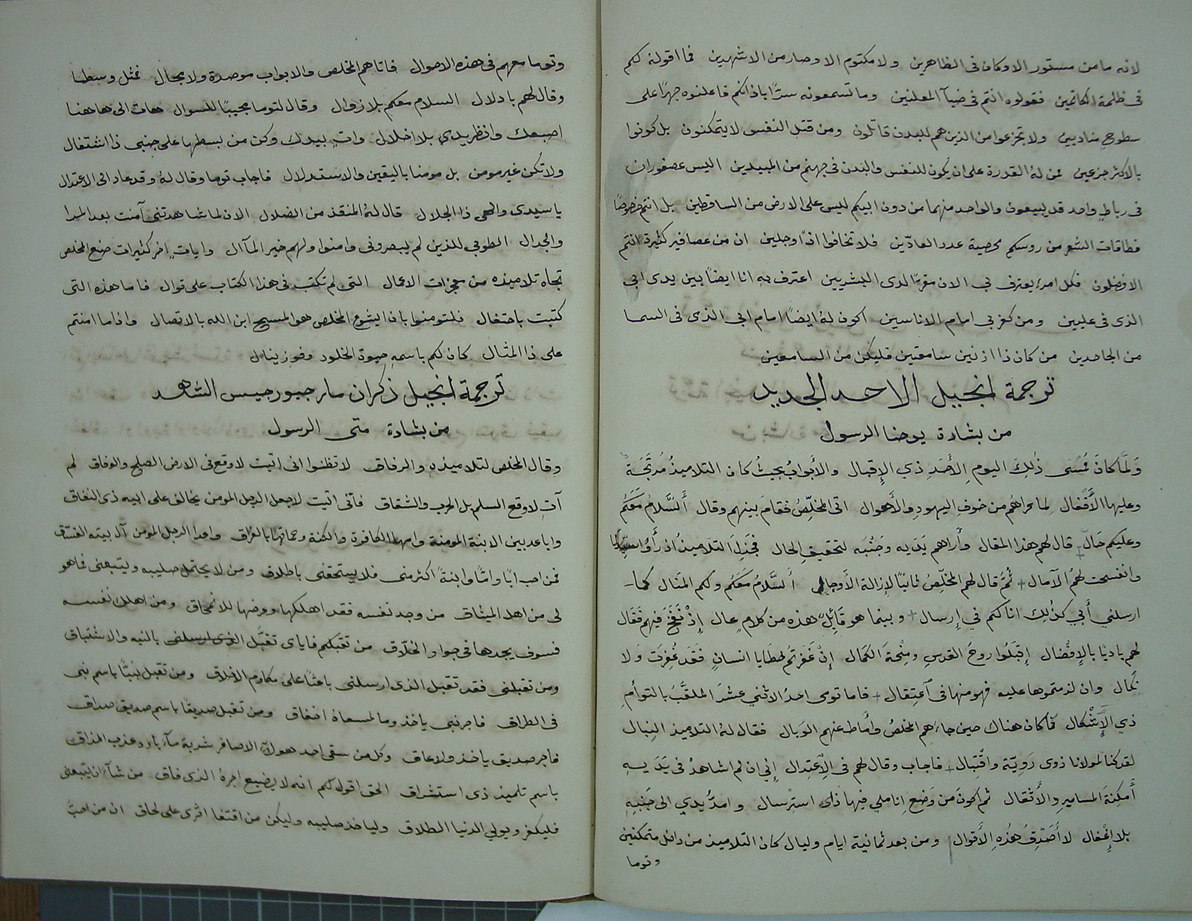 لانه ما من مستور الا وكان في الظاهرين ولا مكتوم الا وصار من الاشهدين فما اقوله لكم
في ظلمة الكاتمين فقولوه انتم في ضيآ المعلنين وما تسمعونه سرًّا باذانكم فاعلنوه جهرًا على
سطوح مناديين ولا تجزعوا من الذين هم للبدن قاتلون ومن قتل النفس لا يتمكنون بل كونوا
بالاكثر جزعين ممن له القدرة على ان يكون للنفس والبدن في جهنم من المبيدين اليس عصفوران
في رباط واحد قد يبيعون والواحد منهما من دون ابيكم ليس على الارض من الساقطين بل انتم
فطاقات الشعر من روسكم محصية عدد العادين فلا تخافوا اذًا وجلين ان من عصافير كثيرة انتم
الافضلون فكل امرء يعترف بي الان مقرًّا لدى البشريين اعترف به انا ايضًا بين يدي ابي
الذي في عليين ومن كفر بي امام الاناسين اكون له ايضًا امام ابي الذي في السما
من الجاحدين من كان ذا اذنين سامعتين فليكن من السامعين
ترجمة انجيل الاحد الجديد
من بشارة يوحنا الرسول
وَلَمَّا كانَ مُسَى ذلِكَ اليوم الاَحَدِ ذي الإقبال والأبوابُ بحيثُ كان التلاميذُ مُرتَجَةً
وعليها الأَقفال لما عراهم من خوف اليهود والأهوال اتى المخلّصُ فقامَ بينهم وقال أَلسَّلامُ مَعَكُم
وعليكم حَالٌ قال لهم هذا المقال وأراهم يَدَيه وجَنْبَه لتحقيق الحال فجَذِلَ التلاميذُ اذ رَأوا سيدنا
وانفسحت لهمُ الآمال ثُمَّ قال لهم المخلّص ثانيًا لإزالة الأوجال أَلسَّلامُ مَعَكم ولكم المثال كما
ارسلني أَبي كذلك انا لكم في إرسال وبينما هو قائلٌ هذه من كلامٍ عالٍ إذْ نَفَخَ فيهم فقال
لهم باديًا بالإفضال إقبَلُوا روحَ القدس ومنحةَ الكمال إنْ غفرتُم خطايا انسانٍ فقد غُفِرَت ولا
نكال وان لزمتموها عليه فهو منها في آعتِقال فاما توما احد الاثني عشر الملقَّب بالتوأم
ذي الإشكال فما كان هناك حين جاءهم المخلص وأماط عنهم الوبال فقال لهُ التلاميذ النبال
لقد كنا لمولانا ذوي رَويّة واقْبال فاجاب وقال لهم في الاعتدال إِني ان لم اشاهدْ في يَدَيهِ
أمكنةَ المسامير والأثقال ثم اكون من وَضع اناملي فيها ذاي استرسال وامدُّ يدي الى جَنبِه
بلا إغفال لا أصَدِّقُ هذه الأقوال ومن بعد ثمانية ايام وليال كان التلاميذ من داخل متمكنين
وتوما
وتوما معهم في هذه الاحوال فاتاهم المخلص والابواب موصدة ولا مجال فمثل وسطًا
وقال لهم بادلال السلام معكم بلا زوال وقال لتوما مجيبًا للسوال هات الى هاهنا
اصبعك وانظر يدي بلا اخلال وات بيدك وكن من بسطها على جنبي ذا اشتغال
ولا تكن غير مومن بل مومنا باليقين والاستدلال فاجاب توما وقال له وقد عاد الى الاعتدال
يا سيدي والهي ذا الجلال قال له المنقذ من الضلال الان لما شاهدتني آمنت بعد المرا
والجدال الطوبى للذين لم يبصروني وامنوا ولهم خير المآل وايات اخر كثيرات صنع المخلص
تجاه تلاميذه من معجزات الاعمال التي لم تكتب في هذا الكتاب على قوال فاما هذه التي
كتبت باحتفال فلتومنوا بان ايشوع المخلص هو المسيح ابن الله بالاتصال واذا ما امنتم
على ذا المثال كان لكم باسمه حيوة الخلود وفوز ينال
ترجمة انجيل ذكران مار جيورجيس الشاهد
من بشارة متى الرسول
وقال المخلص لتلاميذه والرفاق لا تظنوا اني اتيت لاوقع في الارض الصلح والوفاق لم
آت لاوقع السلم بل الحرب والشقاق فاني اتيت لاجعل الرجل المومن يخالق على ابيه ذي النفاق
واباعد بين الابنة المومنة وامها الكافرة والكنة وحماتها بالفراق واعدا الرجل المومن آل بيته الفسق
فمن احب ابًا واُمًّا وابنةً اكثر مني فلا يستحقني باطلاق ومن لا يحتمل صليبه ويتبعني فما هو
لي من اهل الميثاق من وجد نفسه فقد اهلكها وعرضها للانمحاق ومن اهلك نفسه
فسوف يجدها في جوار الخلّاق من تقبلكم فاياي تقبّل الذي ارسلني بالنيه والاشتياق
ومن تقبلني فقد تقبل الذي ارسلني باعثًا على مكارم الاخلاق ومن تقبل نبيًّا باسم نبي
في الطراق فاجر نبي ياخذ وما لمسعاه اخفاق ومن تقبل صديقًا باسم صديق صداق
فاجر صديق ياخذ ولا عاق وكل من سقى احد هولاء الاصاغر شربة مآء بارد عذب المذاق
باسم تلميذ ذي استشراق الحق اقوله لكم انه لا يضيع اجره الذي فاق من شآء ان يتبعني
فليكفر ويولي الدنيا الطلاق ولياخذ صليبه وليكن من اقتفا اثري على لحاق ان من احبّ